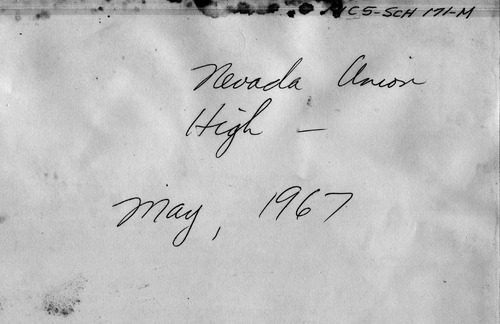 SCH 171-M
Nevada Union
High —
May, 1967